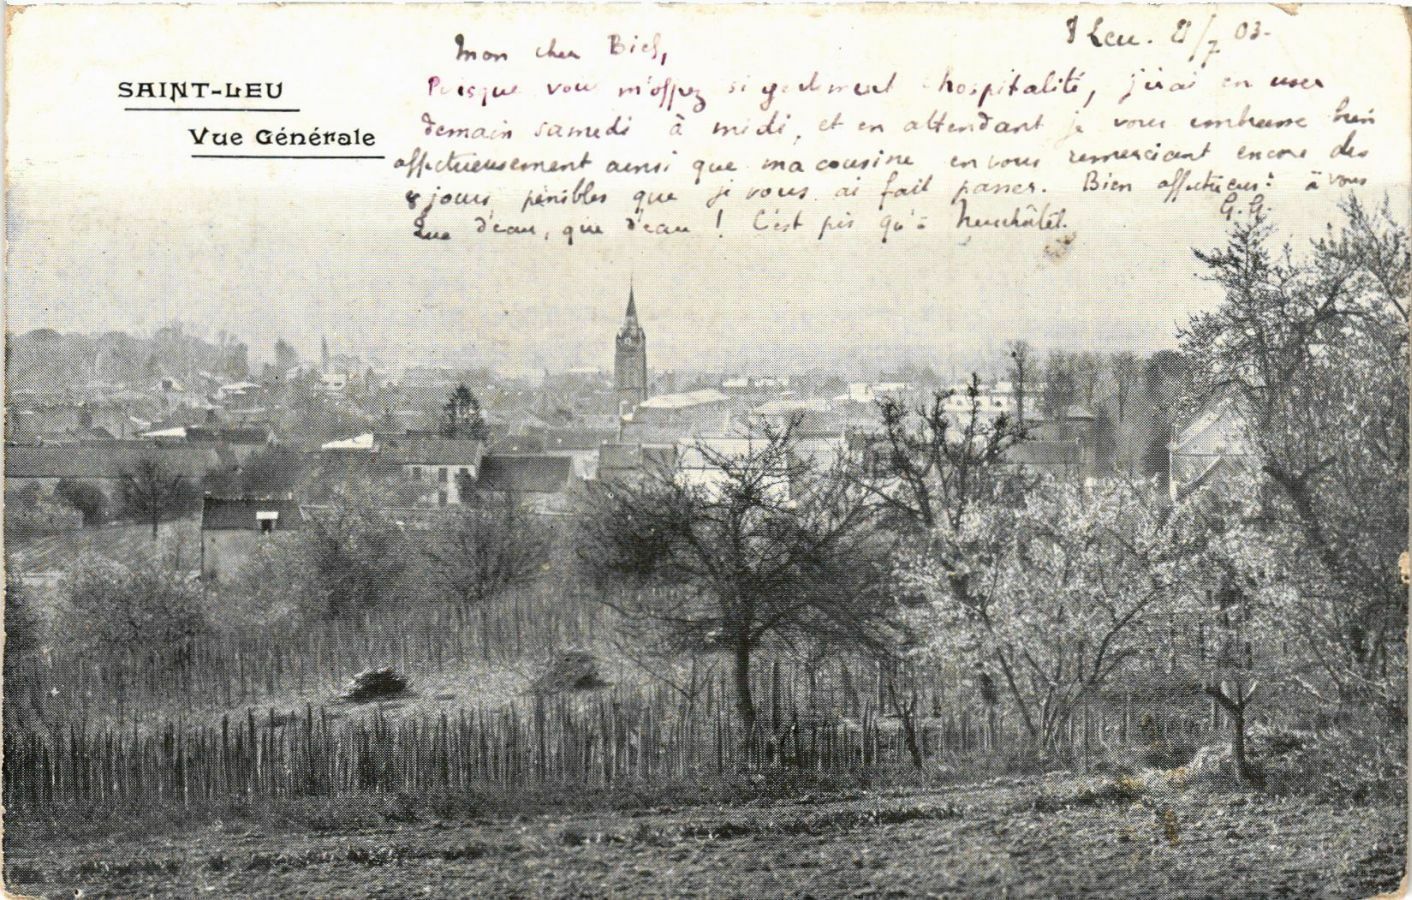 SAINT-LEU
Vue Générale
Leu. /7 03.
Mon cher
Puisque vous m'offrez si gentiment l'hospitalité, j'irai en user
demain samedi à midi, et en attendant je vous embrasse bien
affectueusement ainsi que ma cousine en vous remerciant encore des
8 jours pénibles que je vous ai fait passer. Bien affectueus.t à vous
G. G.
Que d'eau, que d'eau ! C'est pis qu'à Neuchâtel.